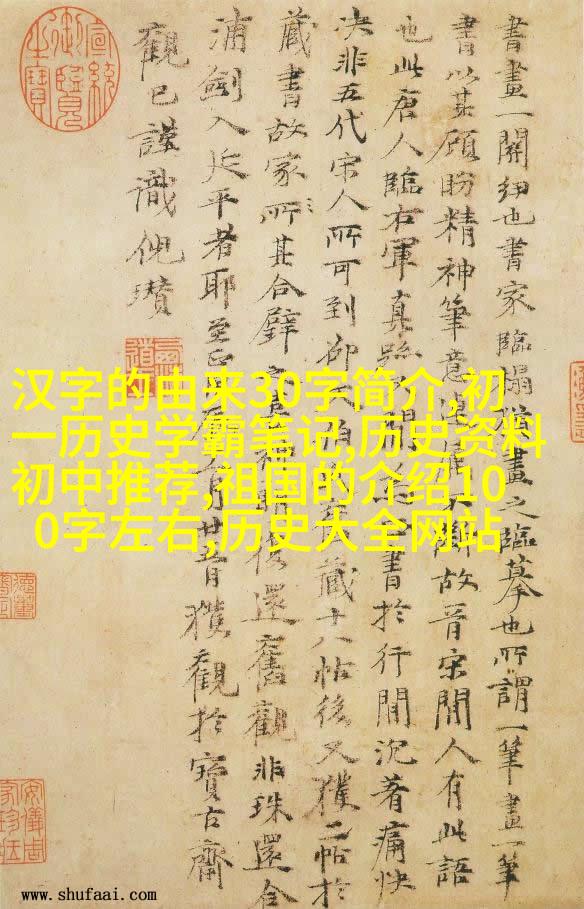 書畫一關紐也書家臨搨猶畫之臨摹也所謂一筆畫一筆
書以其顧盼精神筆意 不斷故晉宋間人有此語
也此唐人臨右軍真 間 書於行間沉著痛快
決非五代宋人所可到卻 藏十八帖後又獲二帖於
藏書故家所其合璧 還舊觀非珠還合
浦劍入延平者耶至正 月廿 獲觀於寶古齋
觀已謹識倪瓚
宣統御覽之寶
汉字的由来30字简介,初
一历史学霸笔记,历史资料
初中推荐,祖国的介绍10
0字左右,历史大全网站
www.shufaai.com